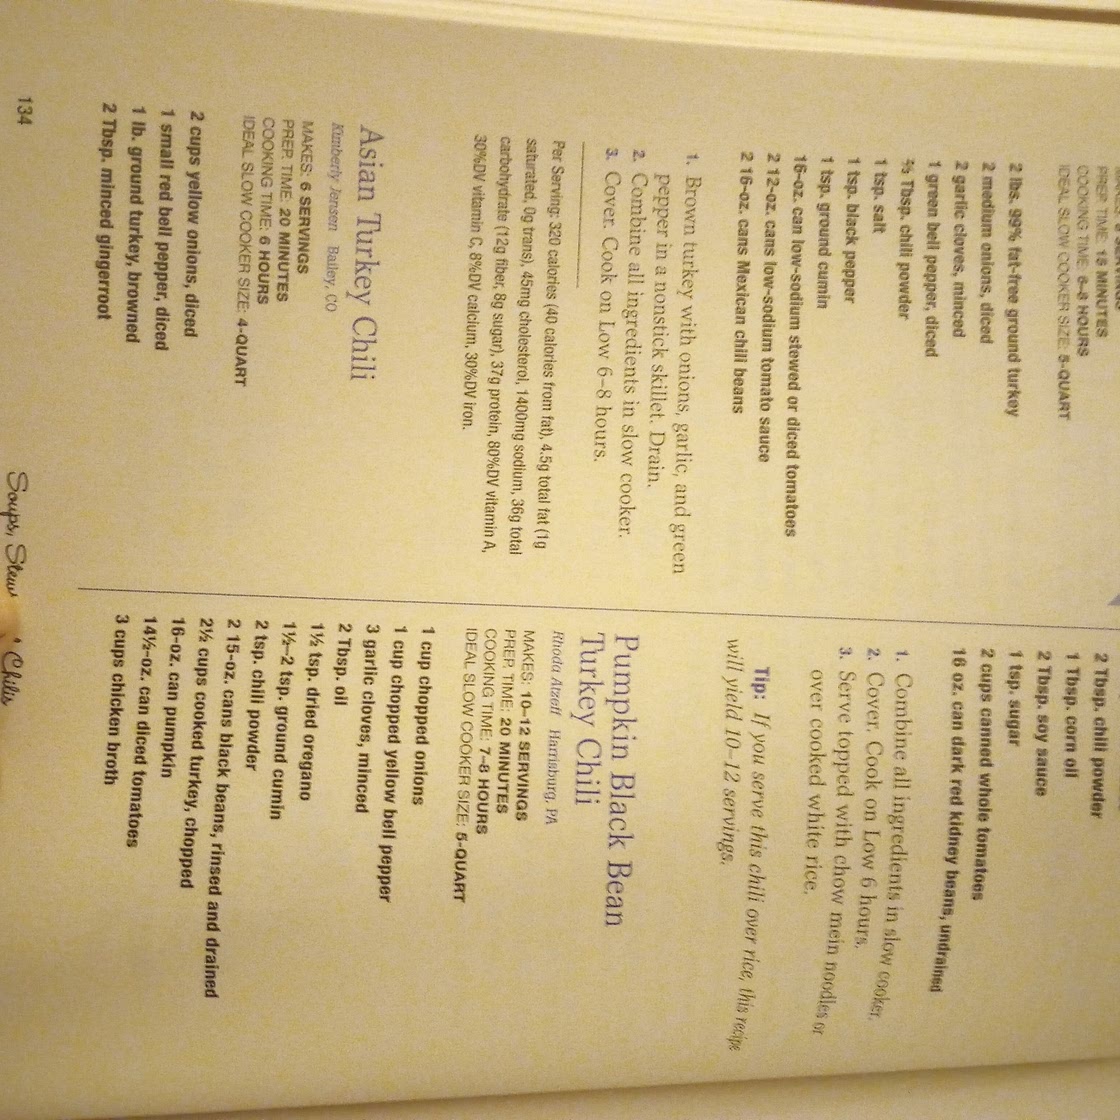 PREP. TIME: 15 MINUTES
COOKING TIME: 6–8 HOURS
IDEAL SLOW COOKER SIZE: 5-QUART
2 lbs. 99% fat-free ground turkey
2 medium onions, diced
2 garlic cloves, minced
1 green bell pepper, diced
¾ Tbsp. chili powder
1 tsp. salt
1 tsp. black pepper
1 tsp. ground cumin
16-oz. can low-sodium stewed or diced tomatoes
2 12-oz. cans low-sodium tomato sauce
2 16-oz. cans Mexican chili beans
1. Brown turkey with onions, garlic, and green
pepper in a nonstick skillet. Drain.
2. Combine all ingredients in slow cooker.
3. Cover. Cook on Low 6–8 hours.
Per Serving: 320 calories (40 calories from fat), 4.5g total fat (1g
saturated, 0g trans), 45mg cholesterol, 1400mg sodium, 36g total
carbohydrate (12g fiber, 8g sugar), 37g protein, 80%DV vitamin A,
30%DV vitamin C, 8%DV calcium, 30%DV iron.
Asian Turkey Chili
Kimberly Jensen Bailey, CO
MAKES: 6 SERVINGS
PREP. TIME: 20 MINUTES
COOKING TIME: 6 HOURS
IDEAL SLOW COOKER SIZE: 4-QUART
2 cups yellow onions, diced
1 small red bell pepper, diced
1 lb. ground turkey, browned
2 Tbsp. minced gingerroot
2 Tbsp. chili powder
1 Tbsp. corn oil
2 Tbsp. soy sauce
1 tsp. sugar
2 cups canned whole tomatoes
16 oz. can dark red kidney beans, undrained
1. Combine all ingredients in slow cooker.
2. Cover. Cook on Low 6 hours.
3. Serve topped with chow mein noodles or
over cooked white rice.
Tip: If you serve this chili over rice, this recipe
will yield 10–12 servings.
Pumpkin Black Bean
Turkey Chili
Rhoda Atzeff Harrisburg, PA
MAKES: 10–12 SERVINGS
PREP. TIME: 20 MINUTES
COOKING TIME: 7–8 HOURS
IDEAL SLOW COOKER SIZE: 5-QUART
1 cup chopped onions
1 cup chopped yellow bell pepper
3 garlic cloves, minced
2 Tbsp. oil
1½ tsp. dried oregano
1½–2 tsp. ground cumin
2 tsp. chili powder
2 15-oz. cans black beans, rinsed and drained
2½ cups cooked turkey, chopped
16-oz. can pumpkin
14½-oz. can diced tomatoes
3 cups chicken broth
134 Soups, Stews Chilis